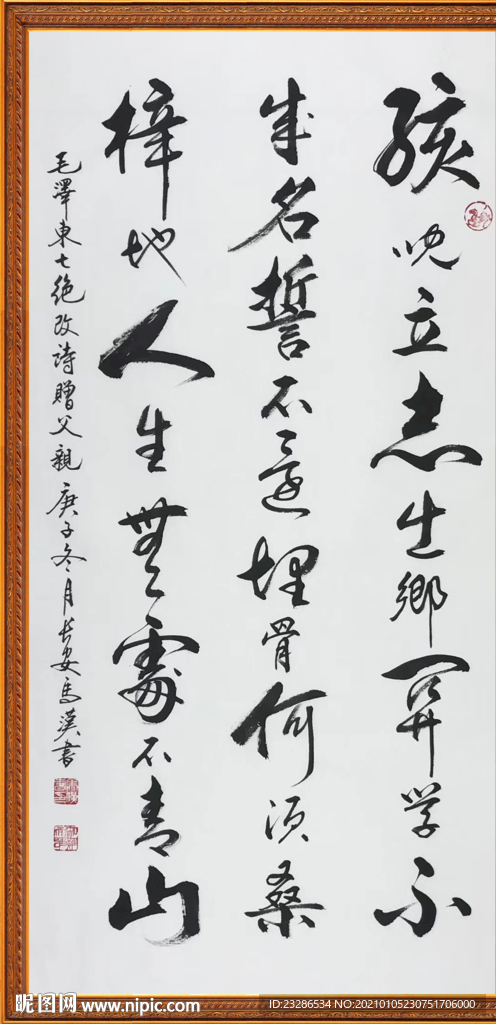 孩兒立志出鄉關學不
成名誓不還埋骨何須桑
梓地人生無處不青山
毛澤東七絕改詩贈父親庚子冬月長安馬漢書
昵图网 www.nipic.com
ID:23286534 NO:20210105230751706000